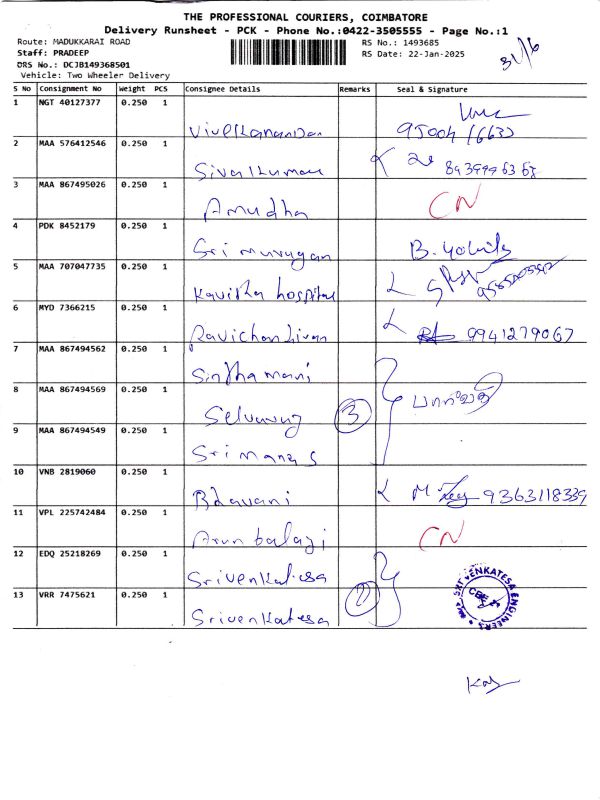 THE PROFESSIONAL COURIERS, COIMBATORE
Delivery Runsheet - PCK - Phone No.:0422-3505555 - Page No.:1
Route: MADUKKARAI ROAD RS No.: 1493685
Staff: PRADEEP RS Date: 22-Jan-2025
DRS No.: DCJB149368501
Vehicle: Two Wheeler Delivery
S No Consignment No Weight PCS Consignee Details Remarks Seal & Signature
1 NGT 40127377 0.250 1 Vivekanandan
2 MAA 576412546 0.250 1 Sivakumar
3 MAA 867495026 0.250 1 Amudha CN
4 PDK 8452179 0.250 1 Sri murugan
5 MAA 707047735 0.250 1 Kavitha hospital
6 MYD 7366215 0.250 1 Ravichandiran 9941279067
7 MAA 867494562 0.250 1 Sinthamani
8 MAA 867494569 0.250 1 Selvaraj 3
9 MAA 867494549 0.250 1
10 VNB 2819060 0.250 1 Bhavani 9363118339
11 VPL 225742484 0.250 1 Arun balaji CN
12 EDQ 25218269 0.250 1 Srivenkatesa
13 VRR 7475621 0.250 1 Srivenkatesa 2
SRI VENKATESA ENGINEERS
CBE